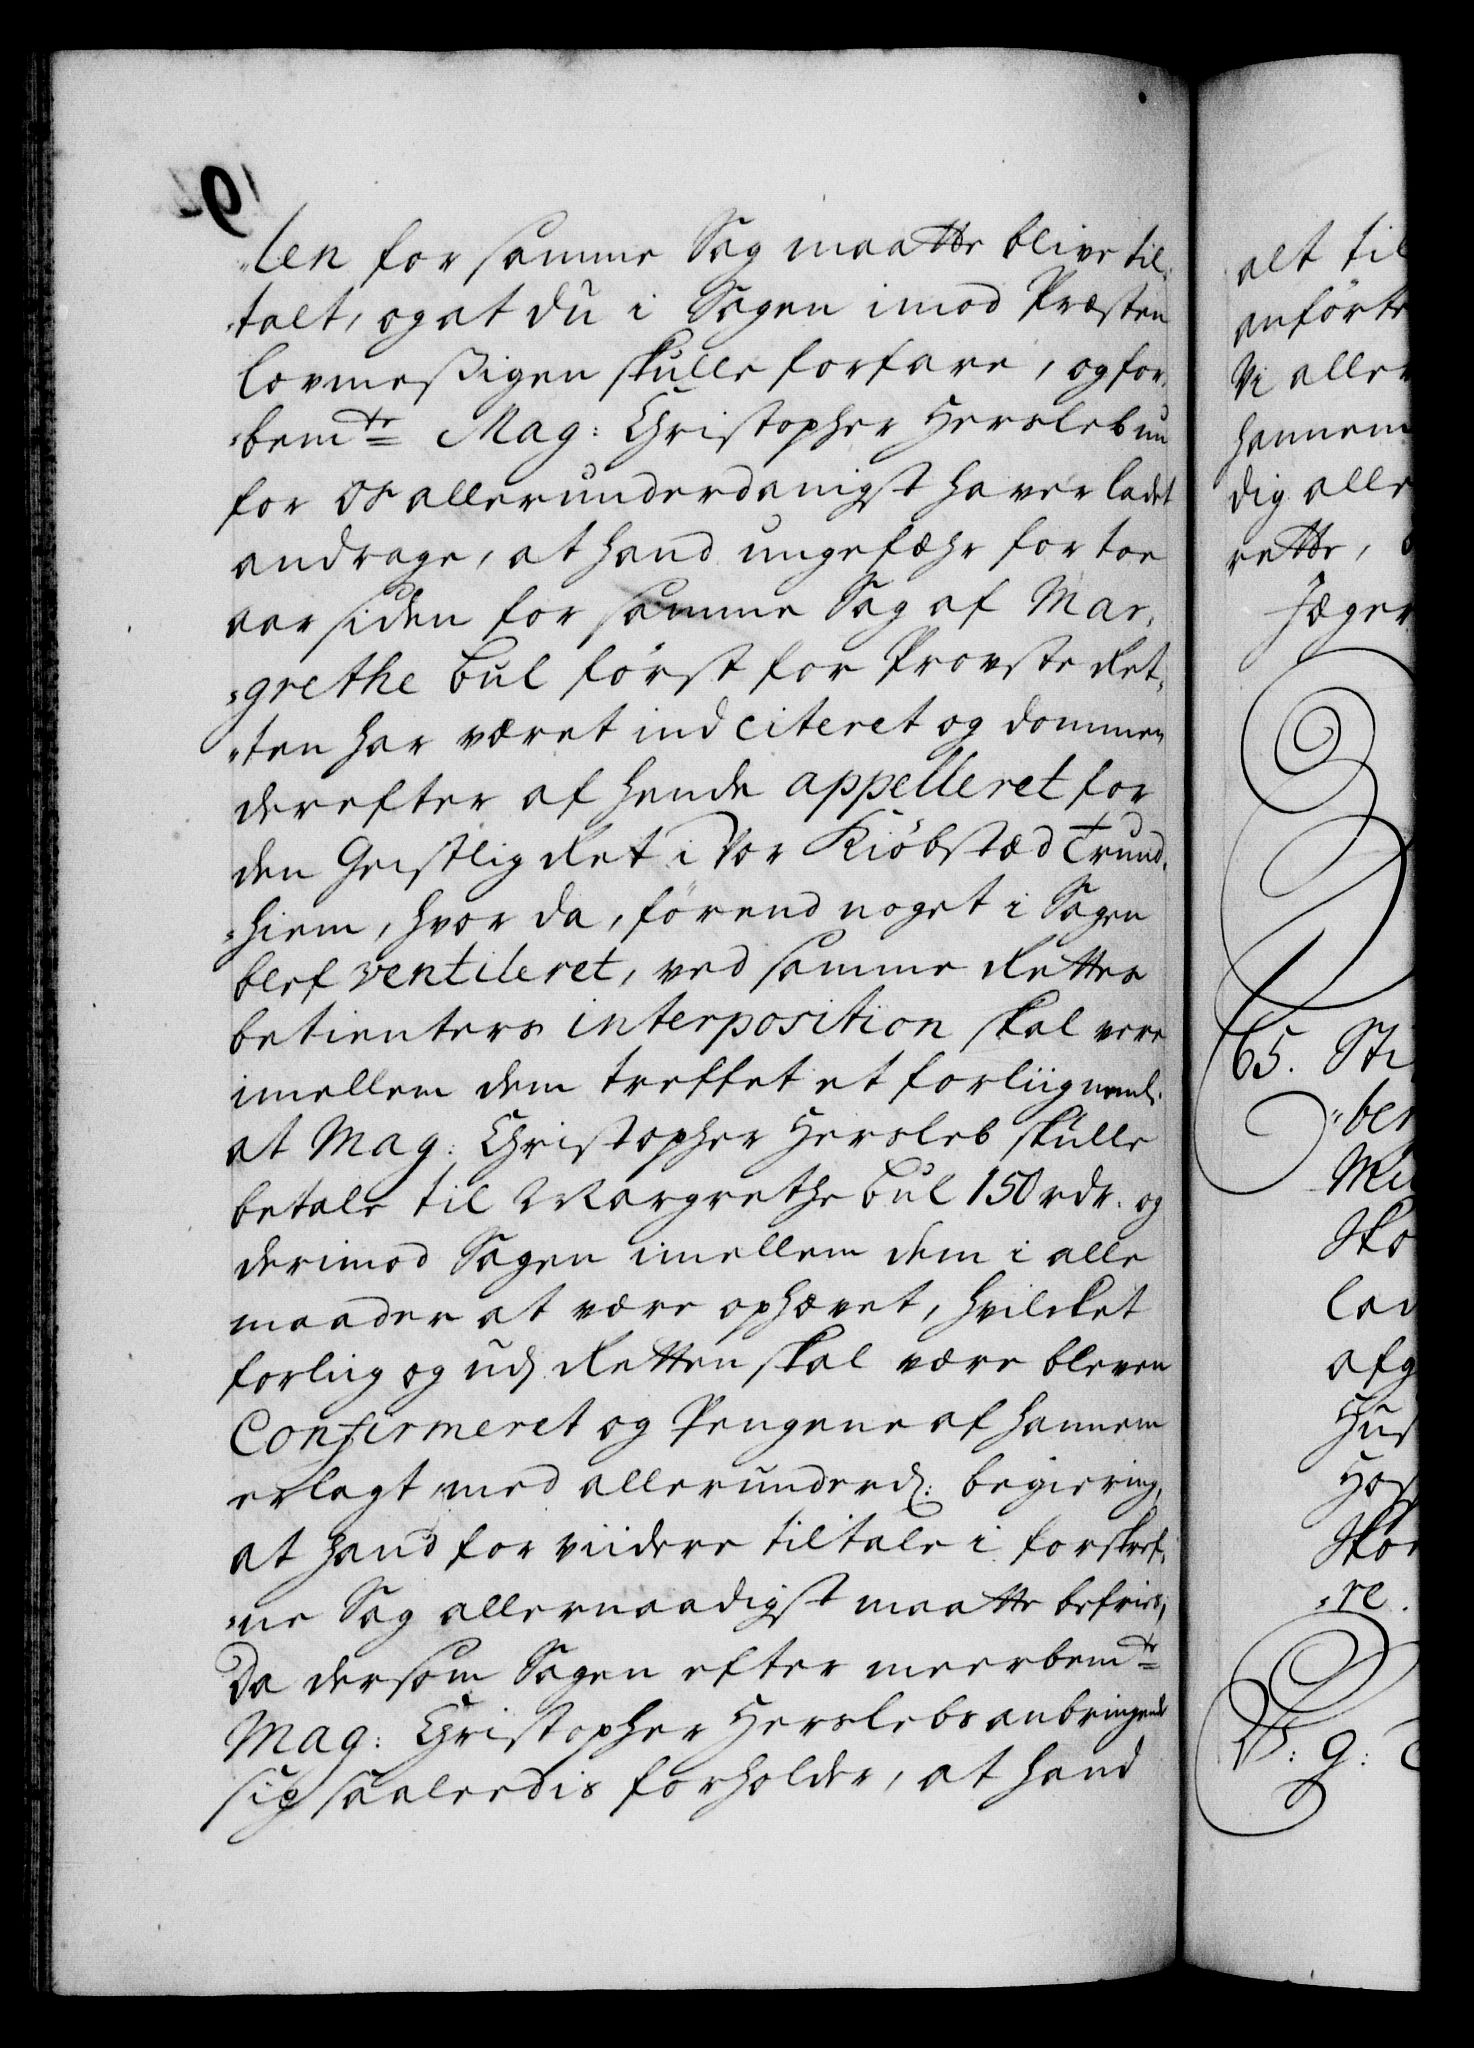 "len for samme Sag maatte blive til,
"talt, og at du i Sagen imod Præsten
lovmeßigen skulle forfare, og for,
"bemte Mag: Christopher Hersleb nu
for os allerunderdanigst haver ladet
andrage, at hand ungefæhr for toe
aar siden for samme Sag af Mar,
"grethe Bul först for Provste Ret,
"ten har været ind citeret og dommen
derefter af hende appelleret for
den Geistlig Ret i Vor Kiöbstæd Trund,
"hiem, hvor da, förend noget i Sagen
blef ventileret, ved samme Rettes
betienters interposition skal vere
imellem dem treffet et forliig nemb:
at Mag: Christopher Hersleb skulle
betale til Margrethe Bul 150 rdr. og
derimod Sagen imellem dem i alle
maader at være ophævet, hvilcket
forliig og udj Retten skal være bleven
Confirmeret og Pengene af hannem
erlagt med allerunderd: begiering,
at hand for viidere tiltale i forskref,
"ne Sag allernaadigst maatte befries,
Da dersom Sagen efter meerbemte
Mag: Christopher Herslebs anbringende
sig saaleedis forholder, at hand
alt til
anförte
Vi aller
hannem
dig alle
rette,
Jæger
65. Sti
"ber
Sko
lad
afg
Hus
Hos
Skor
"re.
V: g: